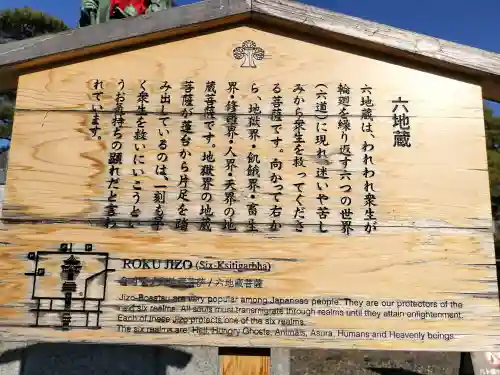 六地蔵
六地蔵は、われわれ衆生が
輪廻を繰り返す六つの世界
(六道)に現れ、迷いや苦し
みから衆生を救ってくださ
る菩薩です。向かって右か
ら、地獄界・餓鬼界・畜生
界・修羅界・人界・天界の地
蔵菩薩です。地獄界の地蔵
菩薩が蓮台から片足を踏
み出しているのは、一刻も早
く衆生を救いにいこうとい
うお気持ちの顕れだといわ
れています。
ROKU JIZO (Six Ksitigarbha)
六地藏菩薩
Jizo-Bosatsu are very popular among Japanese people. They are our protectors of the
said six realms. All souls must transmigrate through realms until they attain enlightenment.
Each of these Jizo protects one of the six realms.
The six realms are: Hell, Hungry Ghosts, Animals, Asura, Humans and Heavenly beings.